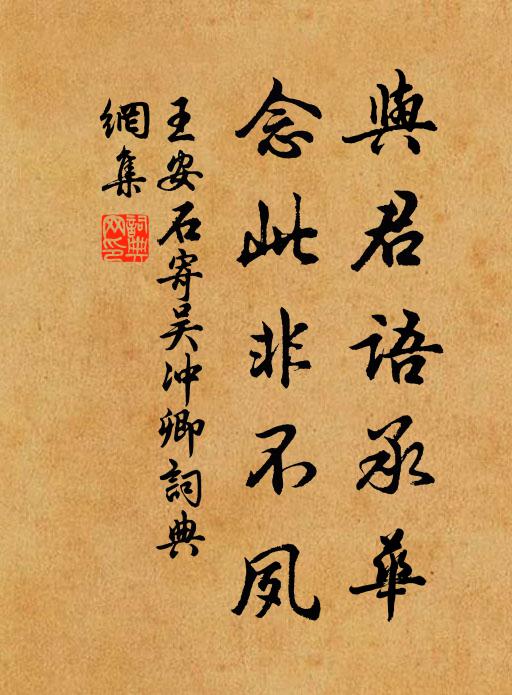 與君語承華
念此非不夙
王安石寄吴冲卿詞典
網集
詞典
網印